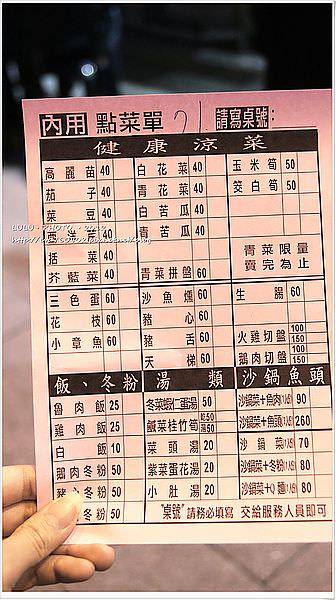 內用 點菜單 21 請寫桌號：
健康涼菜
高麗苗 40 白花菜 40 玉米筍 50
茄子 40 青花菜 40 茭白筍 50
菜豆 40 白苦瓜 40
西洋芹 40 青苦瓜 40
活菜 40 青菜限量
芥藍菜 40 青菜拼盤 60 賣完為止
三色蛋 60 沙魚燻 60 生腸 60
花枝 60 豬心 60
小章魚 60 豬舌 60 火雞切盤 100 150
天梯 60 鵝肉切盤 100 150
飯、冬粉 湯類 沙鍋魚頭
魯肉飯 25 冬菜蝦仁蛋湯 50 沙鍋菜+魚肉(1人份) 90
雞肉飯 25 鹹菜桂竹筍 沙鍋菜+魚頭(1人份) 260
白飯 10 菜頭湯 20 沙鍋菜(1人份) 70
鵝肉冬粉 50 紫菜蛋花湯 20 沙鍋菜+冬粉(1人份) 80
冬粉 50 小肚湯 20 沙鍋菜+Q麵(1人份) 80
冬粉 50 "桌號"請務必填寫 交給服務人員即可
LULU‧PHOTO